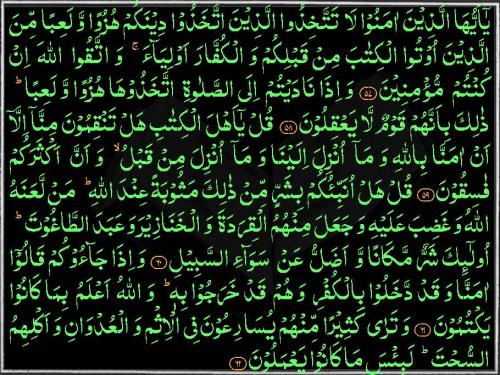 يٰۤاَيُّهَا الَّذِيْنَ اٰمَنُوْا لَا تَتَّخِذُوا الَّذِيْنَ اتَّخَذُوْا دِيْنَكُمْ هُزُوًا وَّ لَعِبًا مِّنَ
الَّذِيْنَ اُوْتُوا الْكِتٰبَ مِنْ قَبْلِكُمْ وَ الْكُفَّارَ اَوْلِيَآءَ ۚ وَ اتَّقُوا اللّٰهَ اِنْ
كُنْتُمْ مُّؤْمِنِيْنَ ﴿۵۷﴾ وَ اِذَا نَادَيْتُمْ اِلَى الصَّلٰوةِ اتَّخَذُوْهَا هُزُوًا وَّ لَعِبًا ؕ
ذٰلِكَ بِاَنَّهُمْ قَوْمٌ لَّا يَعْقِلُوْنَ ﴿۵۸﴾ قُلْ يٰۤاَهْلَ الْكِتٰبِ هَلْ تَنْقِمُوْنَ مِنَّاۤ اِلَّاۤ
اَنْ اٰمَنَّا بِاللّٰهِ وَ مَاۤ اُنْزِلَ اِلَيْنَا وَ مَاۤ اُنْزِلَ مِنْ قَبْلُ ۙ وَ اَنَّ اَكْثَرَكُمْ
فٰسِقُوْنَ ﴿۵۹﴾ قُلْ هَلْ اُنَبِّئُكُمْ بِشَرٍّ مِّنْ ذٰلِكَ مَثُوْبَةً عِنْدَ اللّٰهِ ؕ مَنْ لَّعَنَهُ
اللّٰهُ وَ غَضِبَ عَلَيْهِ وَ جَعَلَ مِنْهُمُ الْقِرَدَةَ وَ الْخَنَازِيْرَ وَ عَبَدَ الطَّاغُوْتَ ؕ
اُولٰٓئِكَ شَرٌّ مَّكَانًا وَّ اَضَلُّ عَنْ سَوَآءِ السَّبِيْلِ ﴿۶۰﴾ وَ اِذَا جَآءُوْكُمْ قَالُوْۤا
اٰمَنَّا وَ قَدْ دَّخَلُوْا بِالْكُفْرِ وَ هُمْ قَدْ خَرَجُوْا بِهٖ ؕ وَ اللّٰهُ اَعْلَمُ بِمَا كَانُوْا
يَكْتُمُوْنَ ﴿۶۱﴾ وَ تَرٰى كَثِيْرًا مِّنْهُمْ يُسَارِعُوْنَ فِى الْاِثْمِ وَ الْعُدْوَانِ وَ اَكْلِهِمُ
السُّحْتَ ؕ لَبِئْسَ مَا كَانُوْا يَعْمَلُوْنَ ﴿۶۲﴾